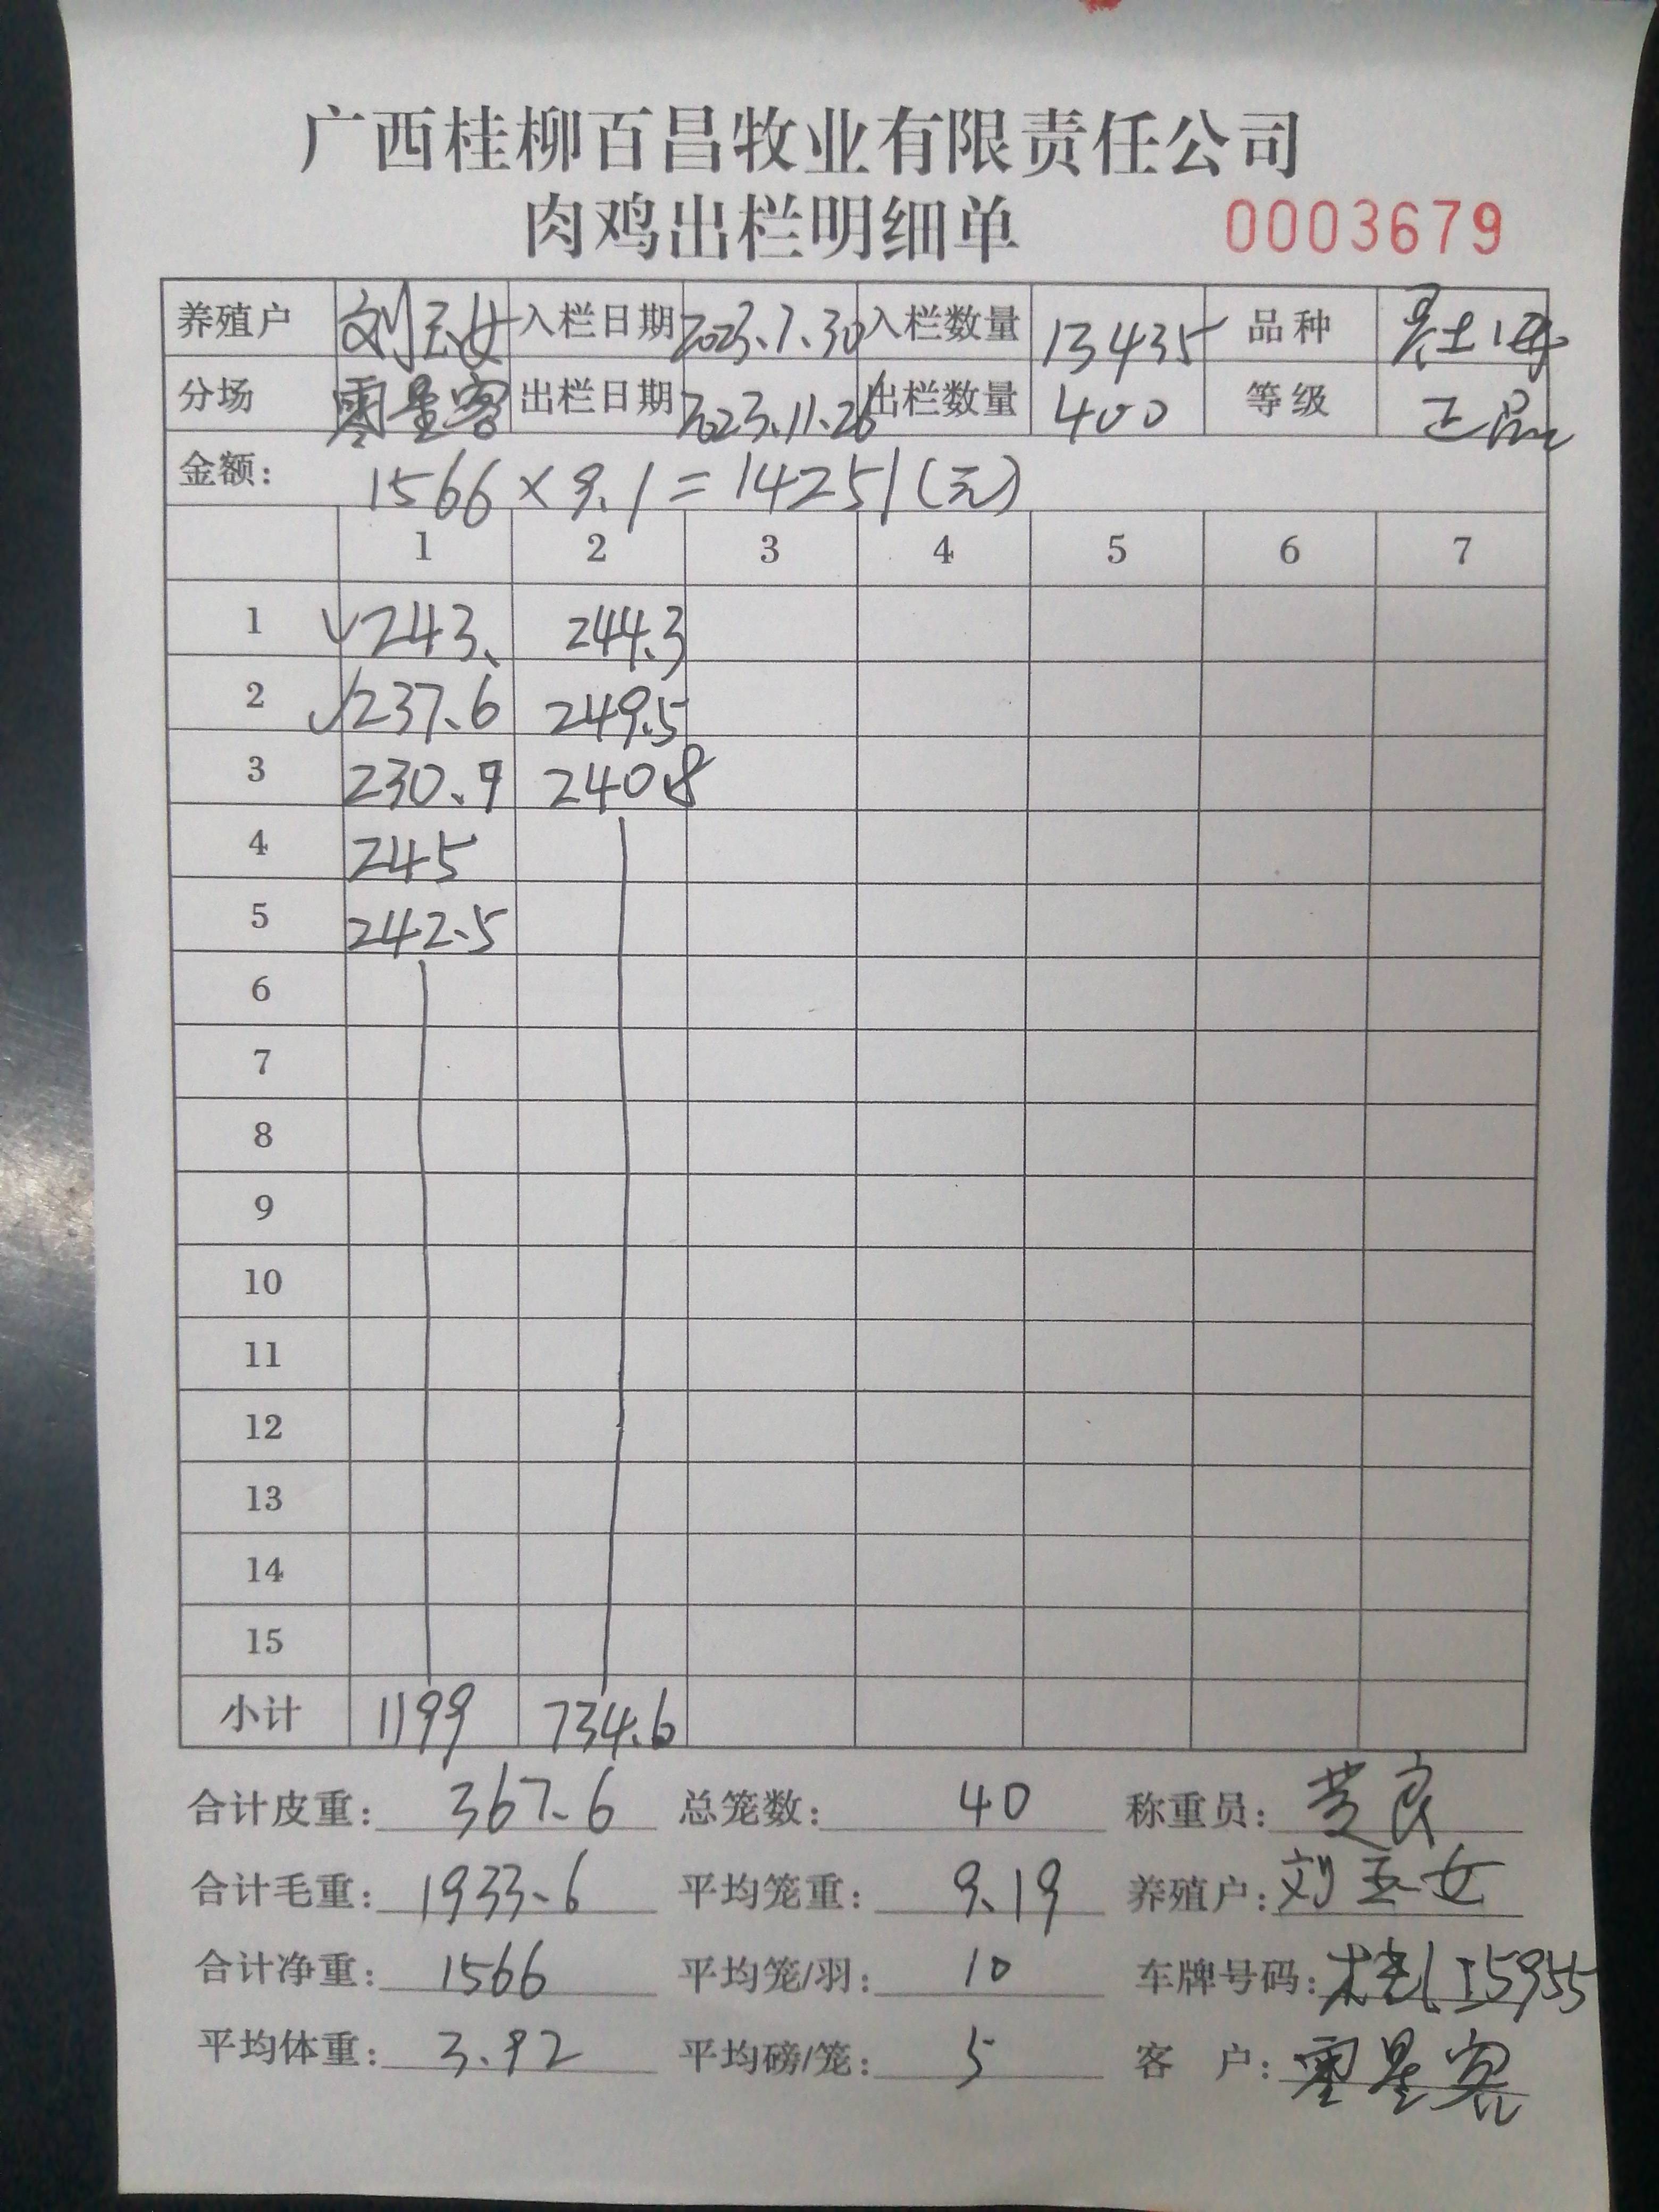 广西桂柳百昌牧业有限责任公司
肉鸡出栏明细单 0003679
养殖户 刘玉女 入栏日期 2023.7.30 入栏数量 13435 品种
分场 零星客 出栏日期 2023.11.26 出栏数量 400 等级 正品
金额: 1566×9.1=14251(元)
1 2 3 4 5 6 7
1 √243. 244.3
2 √237.6 249.5
3 230.9 240.8
4 245
5 242.5
6
7
8
9
10
11
12
13
14
15
小计 1199 734.6
合计皮重: 367.6 总笼数: 40 称重员:
合计毛重: 1933.6 平均笼重: 9.19 养殖户: 刘玉女
合计净重: 1566 平均笼/羽: 10 车牌号码:
平均体重: 3.92 平均磅/笼: 5 客 户: 零星客